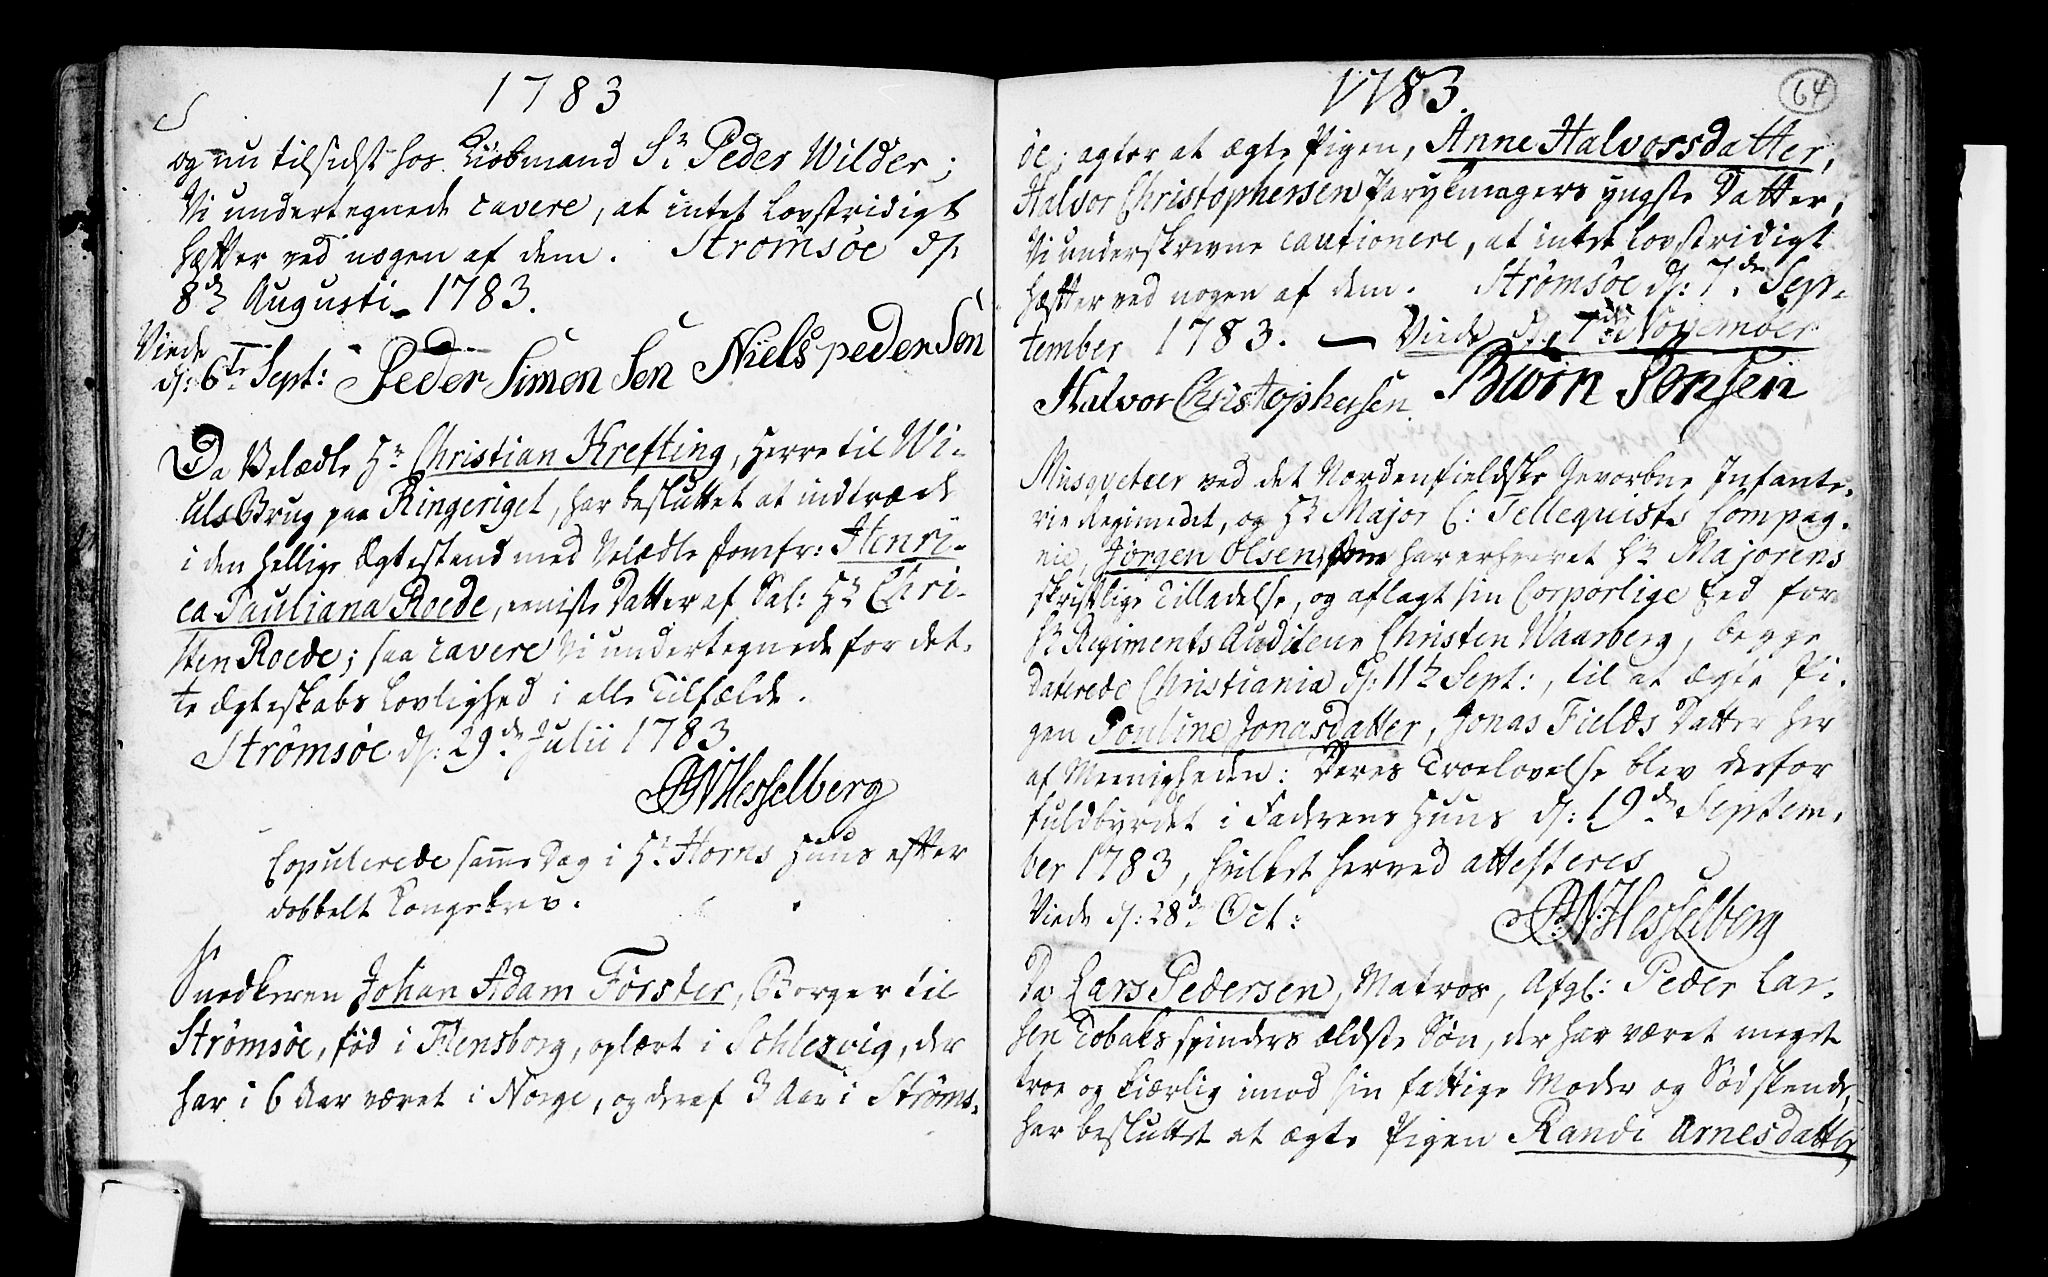 1783
og nu tilsidst hos Kiöbmand Sr Peder Wilder;
Vi undertegnede cavere, at intet lovstridigt
hæfter ved nogen af dem. Strömsöe d:
8de Augusti 1783.
Viede
d: 6te Sept: Peder Simensen Niels pedersen
Da Velædle Hr Christian Krefting, Herre til Wi-
uls Brug paa Ringeriget, har besluttet at indtræde
i den hellige Ægtestand med Velædle Jomfr: Henri-
ca Pauliana Roede, eeniste Datter af Sal: Hr Chri-
sten Roede; saa cavere Vi undertegnede for det-
te Ægteskabs Lovlighed i alle Tilfælde.
Strömsöe d: 29de Julii 1783.
PWHesselberg
Copulerede samme Dag i Hr Horns Huus efter
dobbelt Kongebrev.
Snedkeren Johan Adam Förster, Borger til
Strömsöe, föd i Flensborg, oplært i Schlesvig, der
har i 6 Aar været i Norge, og deraf 3 Aar i Ströms-
1783.
64
öe; agter at ægte Pigen, Anne Halvorsdatter,
Halvor Christophersen Parykmagers yngste Datter;
Vi underskrevne cautionere, at intet lovstridigt
hæfter ved nogen af dem. Strömsöe d: 7de Sep-
tember 1783. — Viede d: 7de November
Halvor Christophersen. Biörn Jonsen
Musqueteer ved det Nordenfieldske Gevorbne Infante-
rie Regimedet, og Hr Major C: Tellequists Compag-
nie, Jörgen Olsen, har erhvervet Hr Majorens
skriftlige Tilladelse, og aflagt sin Corporlige Eed for
Hr Regiments Auditeur Christen Waarberg, begge
daterede Christiania d: 11te Sept:, til at ægte Pi-
gen Pouline Jonasdatter, Jonas Fields Datter her
af Meenigheden: Deres Troelovelse blev derfor
fuldbyrdet i Faderens Huus d: 19de Septem-
ber 1783, hvilket herved attesteres
Viede d: 28de Oct: PWHesselberg
Da Lars Pedersen, Matros, Afgl: Peder Lar-
sen Tobakspinders ældste Sön, der har været meget
troe og kiærlig imod sin fattige Moder og Södskende,
har besluttet at ægte Pigen Randi Arnesdatter